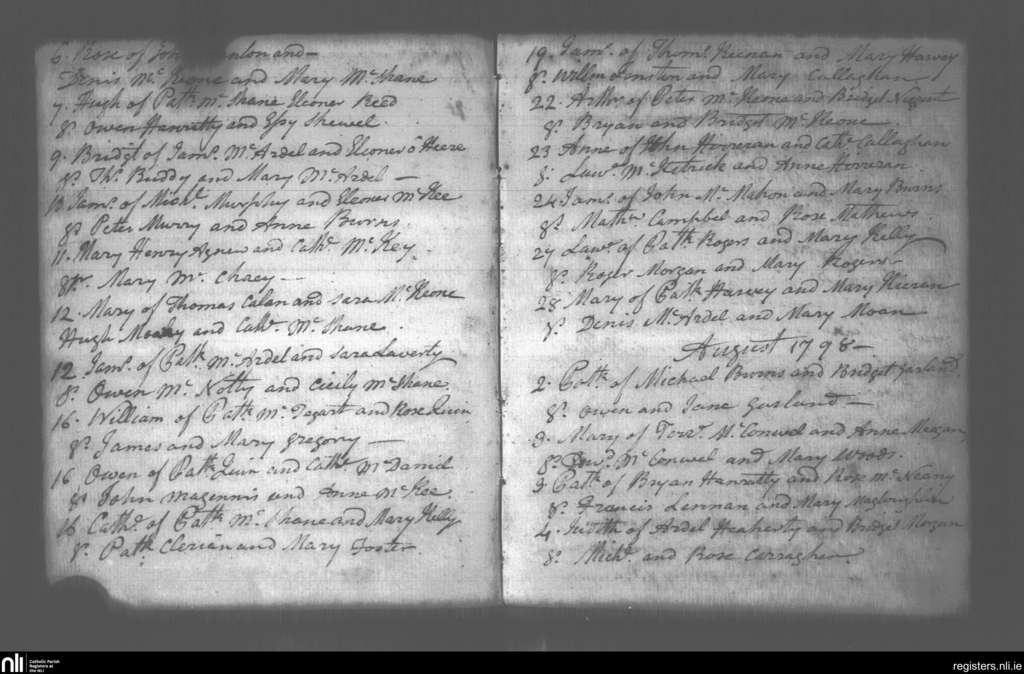 6. Rose of John and
Denis Mc. Keone and Mary Mc. Shane
7. Hugh of Patk. Mc. Shane Eleoner Reed
Sp. Owen Hanratty and Espy Shewel.
9. Bridgt of Jams. Mc. Ardel and Eleoner o Heere
Sp. Ths. Buddy and Mary Mc. Ardel
Jams. of Michl. Murphy and Eleoner Mc. Kee
Sp. Peter Murry and Anne Burns
11. Mary Henry Agnew and Cathe. Mc. Key.
Spr. Mary Mc. Chaey
12. Mary of Thomas Calan and Sara Mc. Keone
Hugh and Cathe. Mc. Shane.
12 Jams. of Patk. Mc. Ardel and Sara Laverty
Sp. Owen Mc. Notty and Cicily Mc. Shane
16. William of Patk. Mc. Tagart and Rose Quin
Sp. James and Mary Gregory
16 Owen of Patk. Quin and Cathe. Mc. Daniel
Sp. John Magennis and Anne Mc. Kee.
16. Cathe. of Patk. Mc. Shane and Mary Kelly
Sp. Patk. Clerian and Mary Foster
19. Jams. of Thoms. Keenan and Mary Harvey
Sp. Willm and Mary Callaghan
22. Arthr. of Peter Mc. Keone and Bridgt Nugent
Sp. Bryan and Bridgt Mc. Keone
23 Anne of John Hooreran and Cathe. Callaghan
Sp. Lawe. Mc. Ketrick and Anne Hooreran
24 Jams. of John Mc. Mahon and Mary Burns
Sp. Mathw. Campbel and Rose Mathews
27 Lawe. of Patk. Rogers and Mary Kelly
Sp. Roger Morgan and Mary Rogers
28 Mary of Patk. Harvey and Mary Kieran
Sp. Denis Mc. Ardel and Mary Moan
August 1798
2. Patk. of Michael Burns and Bridget Garland.
Sp. Owen and Jane Garland
3. Mary of Mc. Conwel and Anne Megan
Sp. Mc. Conwel and Mary Woods.
3 Patk. of Bryan Hanratty and Rose Mc. Neany
Sp. Francis Lennan and Mary
4. Judith of Ardel Heaherty and Bridget Morgan
Sp. Michl. and Rose Carraghan.
nli
Catholic Parish
Registers at
the NLI
registers.nli.ie